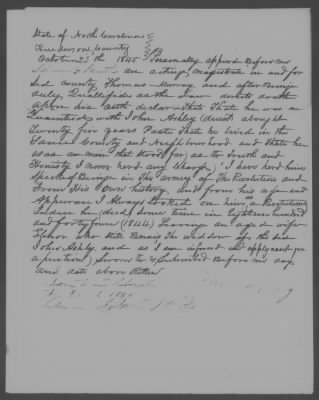 State of North Carolina
County
October 23th 1845 Personally appeared Before me
an acting magistrate in and for
Sed county Thomas Murray and after Being
duly Quallifide as the Law derects doath
upon his oath declar & State that he was an
Quainted with John Ashley (Decest) about
Twenty five years Past that he lived in the
Same County and Neighbourhood and that he
was an man that stood fair as to Truth and
Honesty I never herd any charge, I have herd him
Speak of Being in the Survice of the Revolution and
From His Own history and from his age and
Apperance I Always Looked on him as an Revolutionary
Soldier he died some time in Eighteen hundred
and forty four (1844) Leaving an aged wife
who Still Remains the widdow of the Sed
John Ashley and as I am informed an applycant for
a pention) Sworn to & Subscribed Before me day
and date above Riten